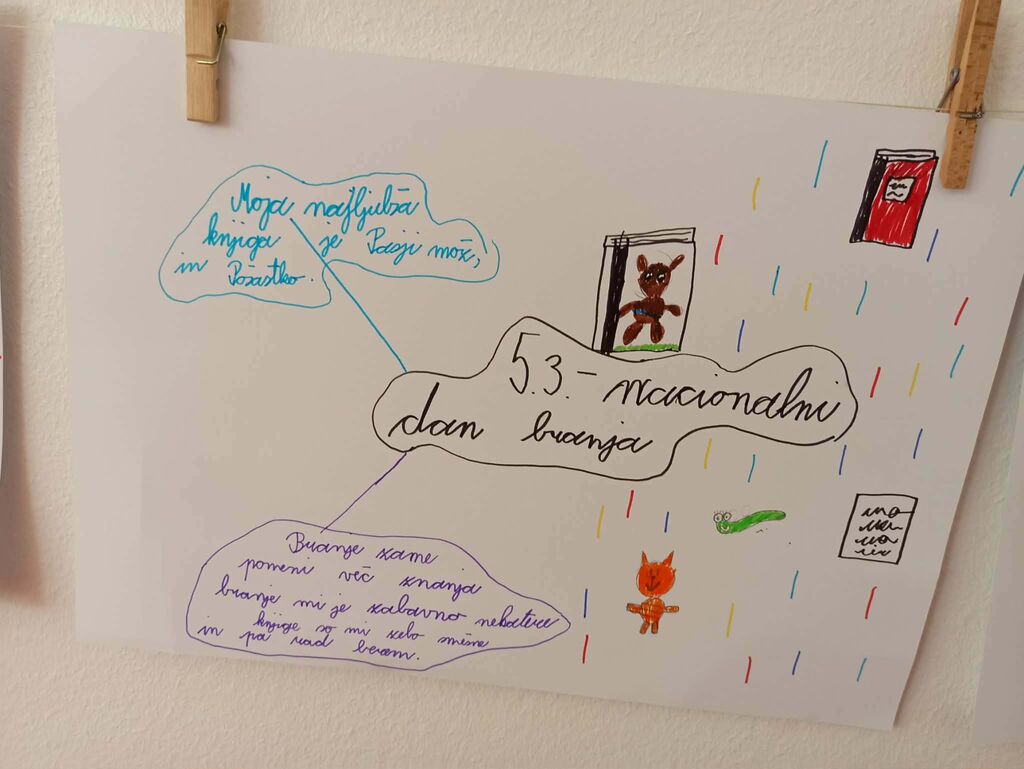 Moja najljubša
knjiga je Pasji mož,
in Požastko.
5.3. - nacionalni
dan branja
Branje zame
pomeni več znanja
branje mi je zabavno nekatere
knjige so mi zelo smešne
in pa rad berem.